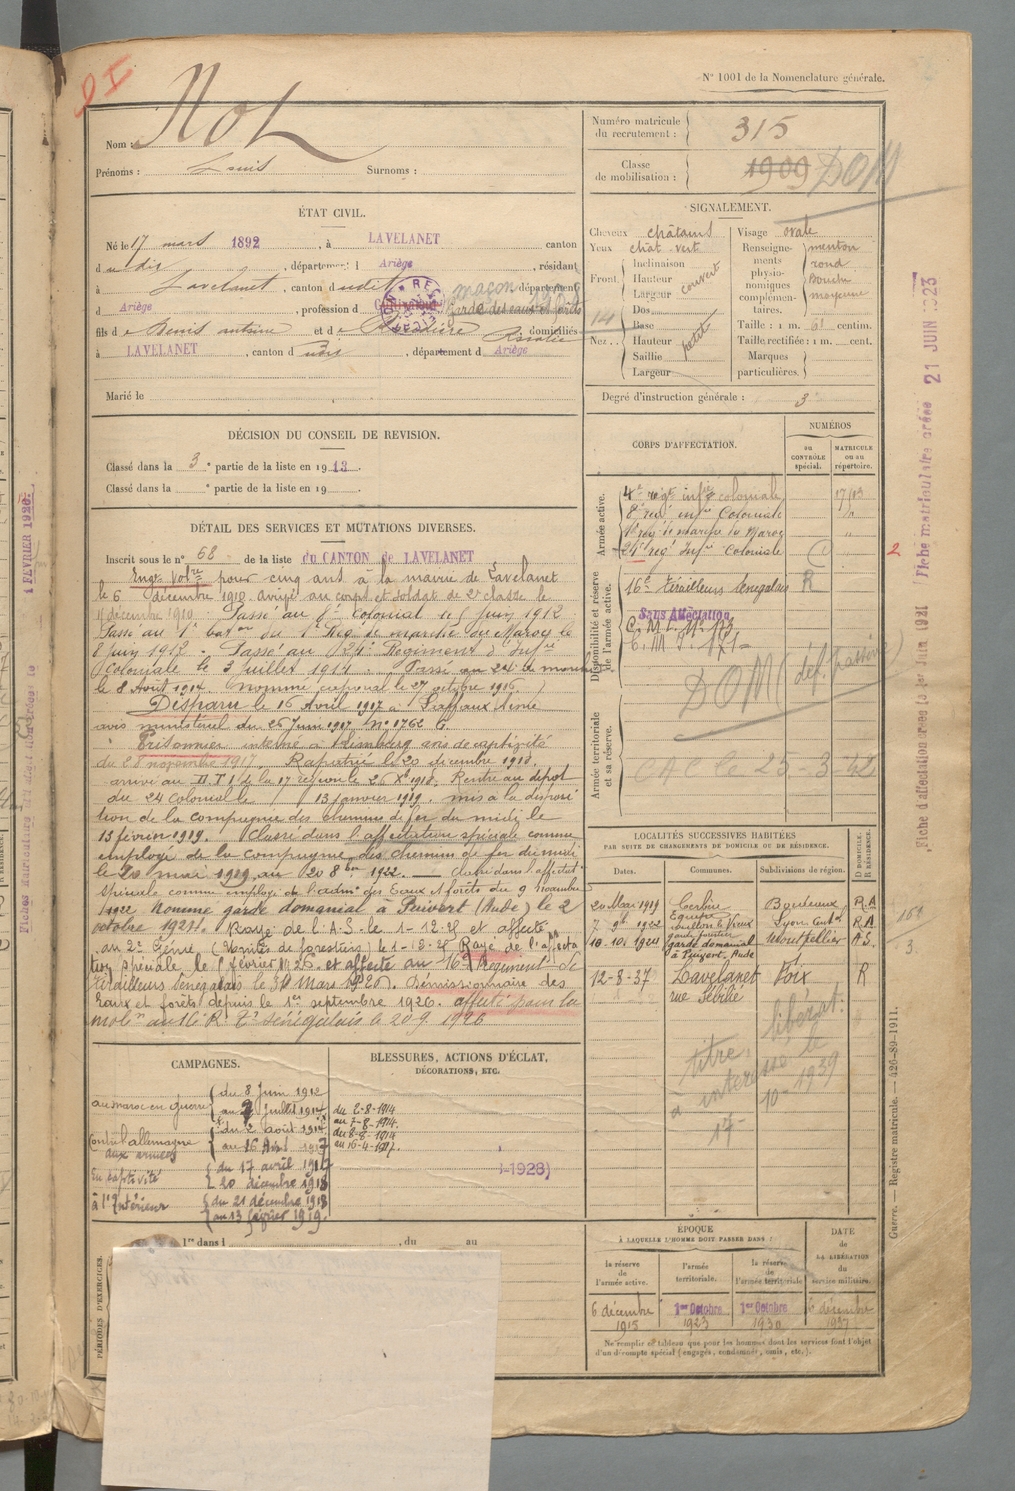 N° 1001 de la Nomenclature générale.
Nom : Not
Prénoms : Louis Surnoms :
Numéro matricule du recrutement : 315
Classe de mobilisation : 1909 DOM
ÉTAT CIVIL.
Né le 17 mars 1892, à LAVELANET canton
d u dit, département Ariège, résidant
à Lavelanet, canton d udit, département
d Ariège, profession d maçon Garde des eaux et forêts
fils d e Denis antoine et d e Rosalie domiciliés
à LAVELANET, canton d , département d Ariège
Marié le
SIGNALEMENT.
Cheveux châtains
Yeux chat-vert
Front Inclinaison
Hauteur
Largeur
couvert
Nez Dos
Base
Hauteur
Saillie
Largeur
petite
Visage ovale
Renseignements physionomiques complémentaires.
menton
rond
Bouche
moyenne
Taille : 1 m. 61 centim.
Taille rectifiée : 1 m. cent.
Marques particulières.
Degré d'instruction générale : 3
DÉCISION DU CONSEIL DE REVISION.
Classé dans la 3e partie de la liste en 1913.
Classé dans la e partie de la liste en 19
DÉTAIL DES SERVICES ET MUTATIONS DIVERSES.
Inscrit sous le n° 68 de la liste du CANTON de LAVELANET
Engt Volre pour cinq ans à la mairie de Lavelanet
le 6 décembre 1910. arrivé au corps et soldat de 2e classe le
11 décembre 1910. Passé au 8e colonial le 5 juin 1912
Passé au 1e baton du 1e Reg. de marche du Maroc le
8 Juin 1912. Passé au 24e Régiment d'Infrie
Coloniale le 3 juillet 1914. Passé au 24e de marche
le 8 Août 1914. Nommé caporal le 27 octobre 1916.
Disparu le 16 Avril 1917 à Laffaux Aisne
avis ministériel du 26 Juin 1917 N° 1762 G.
Prisonnier interné à Limburg avis de captivité
du 28 novembre 1917. Rapatrié le 20 décembre 1918.
arrivé au de la 17 region le 26 Xe 1918. Rentré au dépôt
du 24 Coloniale 13 janvier 1919. mis à la disposi
tion de la compagnie des chemins de fer du midi le
13 février 1919. Classé dans l'affectation spéciale comme
employé de la compagnie des chemins de fer du midi
le 20 mai 1929 au 20 8bre 1922. Classé dans l'affectat
spéciale comme employé de l'admon des Eaux et forêts du 9 novembre
1922 Nommé garde domanial à Puivert (Aude) le 2
octobre 1924. Rayé de l'A.S. le 1-12-25 et affecté
au 2e Génie (Unités de forestiers) le 1-12-25 Rayé de l'affecta
tion spéciale le 1 février 1926. et affecté au 16e Régiment de
tirailleurs sénégalais le 31 Mars 1926). Démissionnaire des
Eaux et forêts depuis le 1er septembre 1926. affecté dans la
mobon au 16 R. Trs sénégalais le 20 9. 1926
CORPS D'AFFECTATION.
NUMÉROS
au CONTRÔLE spécial.
MATRICULE ou au répertoire.
Armée active.
4e régt infie coloniale 17113
8e reg infie Coloniale "
1e reg de marche du Maroc "
24e reg Infie Coloniale "
Disponibilité et réserve de l'armée active.
16e tirailleurs sénégalais R
Sans Affectation
DOM (déf. passive)
Armée territoriale et sa réserve.
CAC le 25-3-42
LOCALITÉS SUCCESSIVES HABITÉES
PAR SUITE DE CHANGEMENTS DE DOMICILE OU DE RÉSIDENCE.
Dates. Communes. Subdivisions de région. D DOMICILE. R RÉSIDENCE.
20 Mai 1919 Cerbère R.A
7 9bt 1922 R.A
10-10-1924 garde domanial à Puivert, Aude Montpellier A.S.
12-8-37 Lavelanet rue Sébilié Foix R
libérat.
titre
à intéressé le
17-10-1939
CAMPAGNES.
au maroc en guerre du 8 Juin 1912
au 2 Juillet 1914
Contre l'allemagne aux armées du 2 août 1914
au 16 Avril 1917
En captivité du 17 avril 1917
20 décembre 1918
à l'Intérieur du 21 décembre 1918
au 13 février 1919.
BLESSURES, ACTIONS D'ÉCLAT, DÉCORATIONS, ETC.
du 2-8-1914
au 7-8-1914.
du 8-8-1914
au 16-4-1917.
-1928)
PÉRIODES D'EXERCICES.
1re dans l , du au
ÉPOQUE
À LAQUELLE L'HOMME DOIT PASSER DANS :
la réserve de l'armée active. l'armée territoriale. la réserve de l'armée territoriale
DATE de LA LIBÉRATION du service militaire.
6 décembre 1915 1er Octobre 1923 1er Octobre 1930 6 décembre 1937
Ne remplir ce tableau que pour les hommes dont les services font l'objet
d'un décompte spécial (engagés, condamnés, omis, etc.).
Guerre. — Registre matricule. — 426-89-1911.
Fiche matriculaire créée 21 JUIN 1923
1 FÉVRIER 1926.